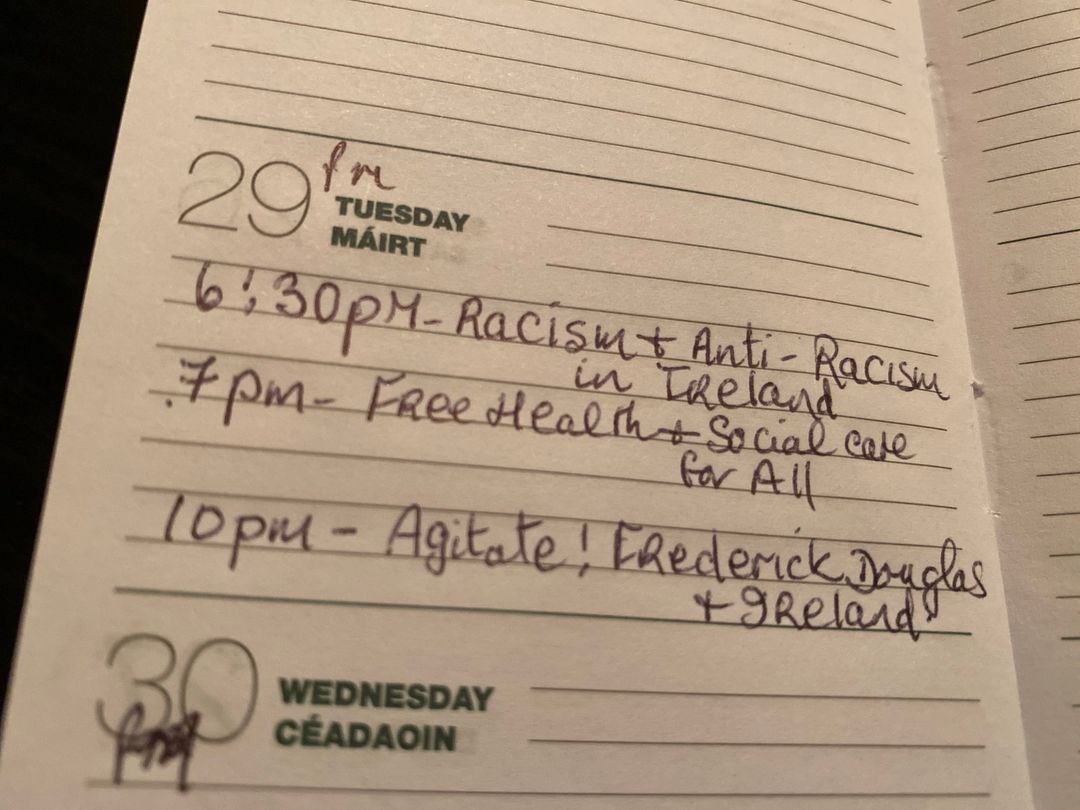 29 pm
TUESDAY
MÁIRT
6:30pM - Racism + Anti-Racism
in IReland
.7pm - FRee Health + Social care
for All
10pm - Agitate! FRederick Douglas
+ IReland
30 WEDNESDAY
CÉADAOIN